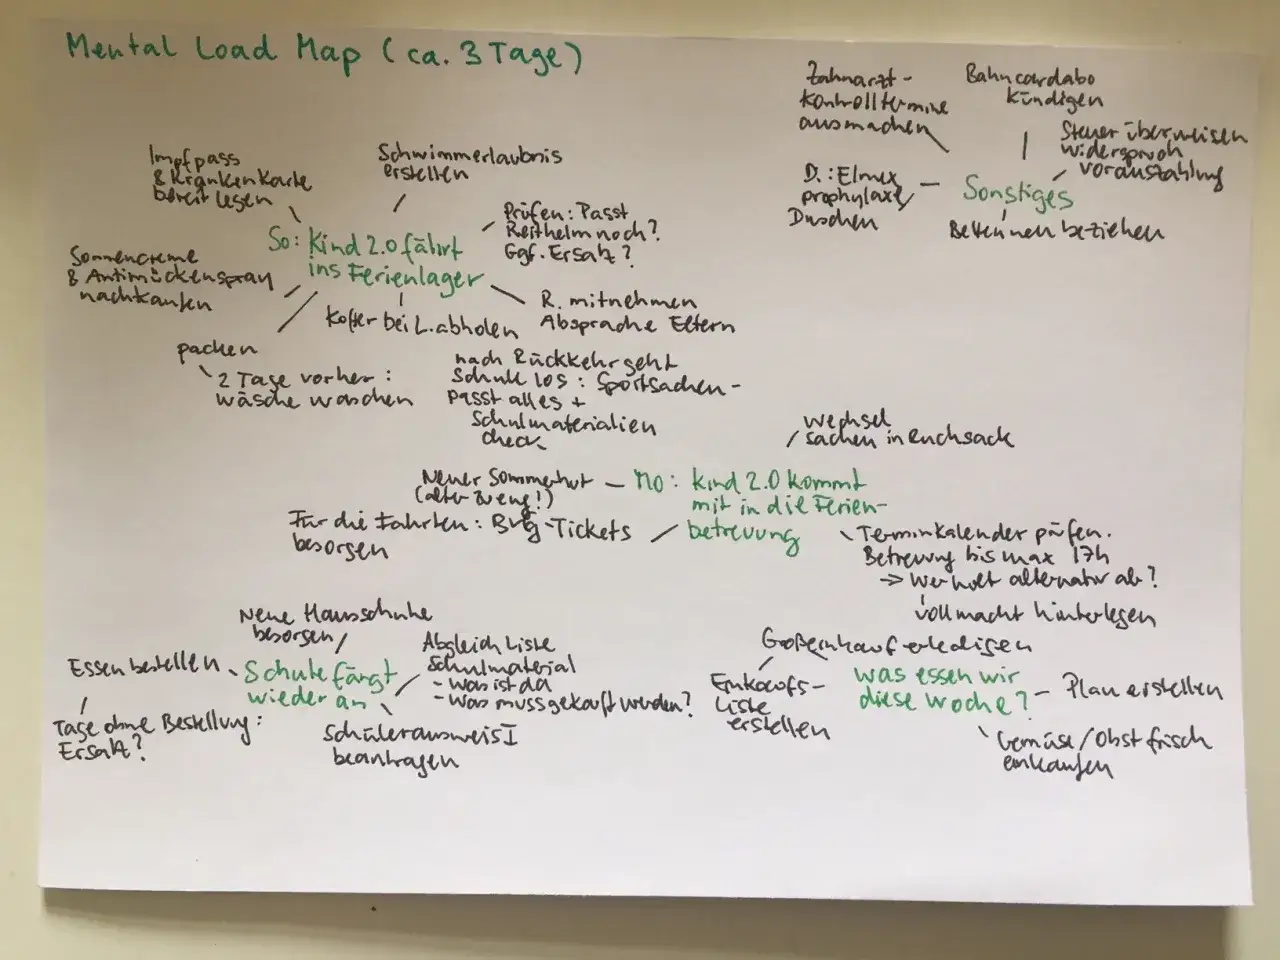 Mental Load Map (ca. 3 Tage)
Impfpass
& Krankenkarte
bereit legen
Schwimmerlaubnis
erstellen
Prüfen: Passt
Reithelm noch?
Ggf. Ersatz?
So: Kind 2.0 fährt
ins Ferienlager
Sonnencreme
& Antimückenspray
nachkaufen
Koffer bei L. abholen
R. mitnehmen
Absprache Eltern
packen
2 Tage vorher:
wäsche waschen
nach Rückkehr geht
Schule los: Sportsachen -
passt alles +
Schulmaterialien
check
Zahnarzt-
kontrolltermine
ausmachen
Bahncardabo
kündigen
Steuer überweisen
widerspruch
vorauszahlung
D.: Elmex
prophylaxe
Duschen
Sonstiges
Betten neu beziehen
wechsel
sachen in Rucksack
Neuer Sommerhut
(alter zu eng!)
Mo: Kind 2.0 kommt
mit in die Ferien-
betreuung
Für die Fahrten: Brg-Tickets
besorgen
Terminkalender prüfen.
Betreuung bis max 17h
=> Wer holt alternativ ab?
Vollmacht hinterlegen
Neue Hausschuhe
besorgen
Essen bestellen
Schule fängt
wieder an
Abgleich Liste
Schulmaterial
- Was ist da
- Was muss gekauft werden?
Tage ohne Bestellung:
Ersatz?
Schülerausweis I
beantragen
Großeinkauf erledigen
was essen wir
diese Woche?
Einkaufs-
Liste
erstellen
Plan erstellen
Gemüse/Obst frisch
einkaufen